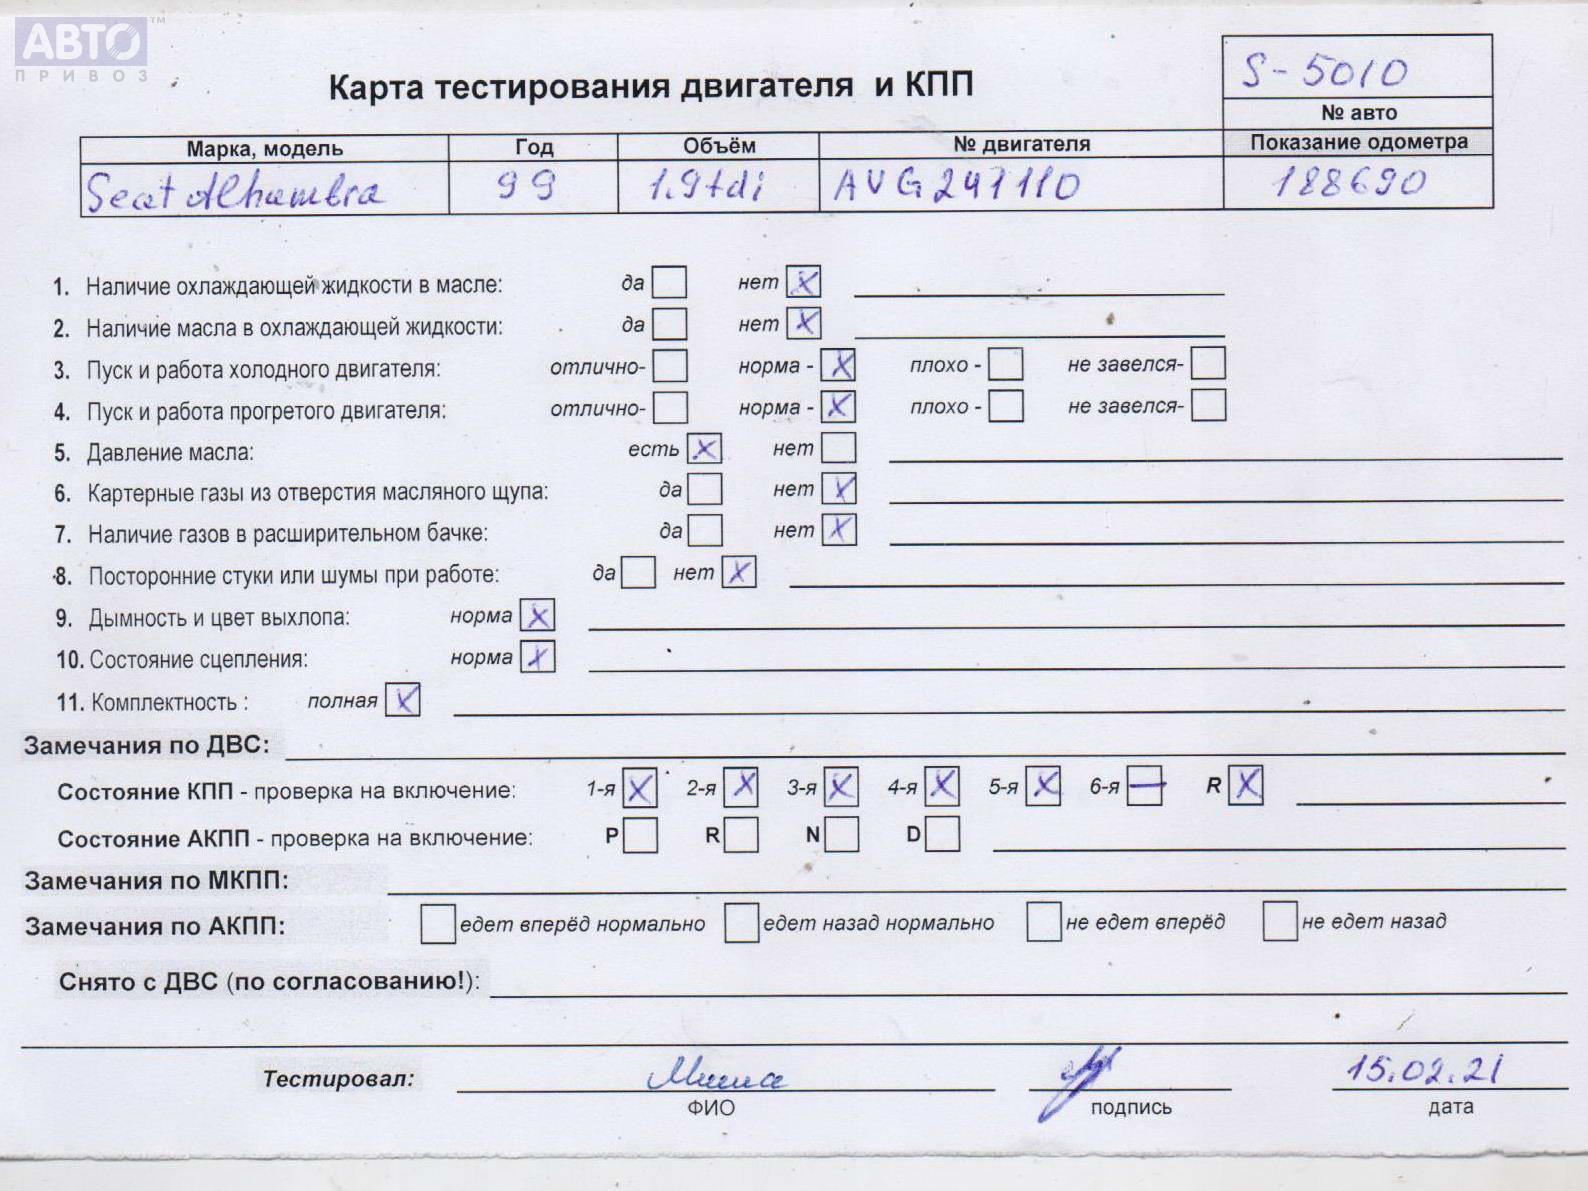 АВТО ™
ПРИВОЗ
S-5010
Карта тестирования двигателя и КПП
№ авто
Марка, модель Год Объём № двигателя Показание одометра
Seat Alhambra 99 1.9tdi AVG241110 188690
1. Наличие охлаждающей жидкости в масле: да нет X
2. Наличие масла в охлаждающей жидкости: да нет X
3. Пуск и работа холодного двигателя: отлично- норма - X плохо - не завелся-
4. Пуск и работа прогретого двигателя: отлично- норма - X плохо - не завелся-
5. Давление масла: есть X нет
6. Картерные газы из отверстия масляного щупа: да нет X
7. Наличие газов в расширительном бачке: да нет X
8. Посторонние стуки или шумы при работе: да нет X
9. Дымность и цвет выхлопа: норма X
10. Состояние сцепления: норма X
11. Комплектность : полная X
Замечания по ДВС:
Состояние КПП - проверка на включение: 1-я X 2-я X 3-я X 4-я X 5-я X 6-я — R X
Состояние АКПП - проверка на включение: P R N D
Замечания по МКПП:
Замечания по АКПП: едет вперёд нормально едет назад нормально не едет вперёд не едет назад
Снято с ДВС (по согласованию!):
Тестировал: Миша 15.02.21
ФИО подпись дата